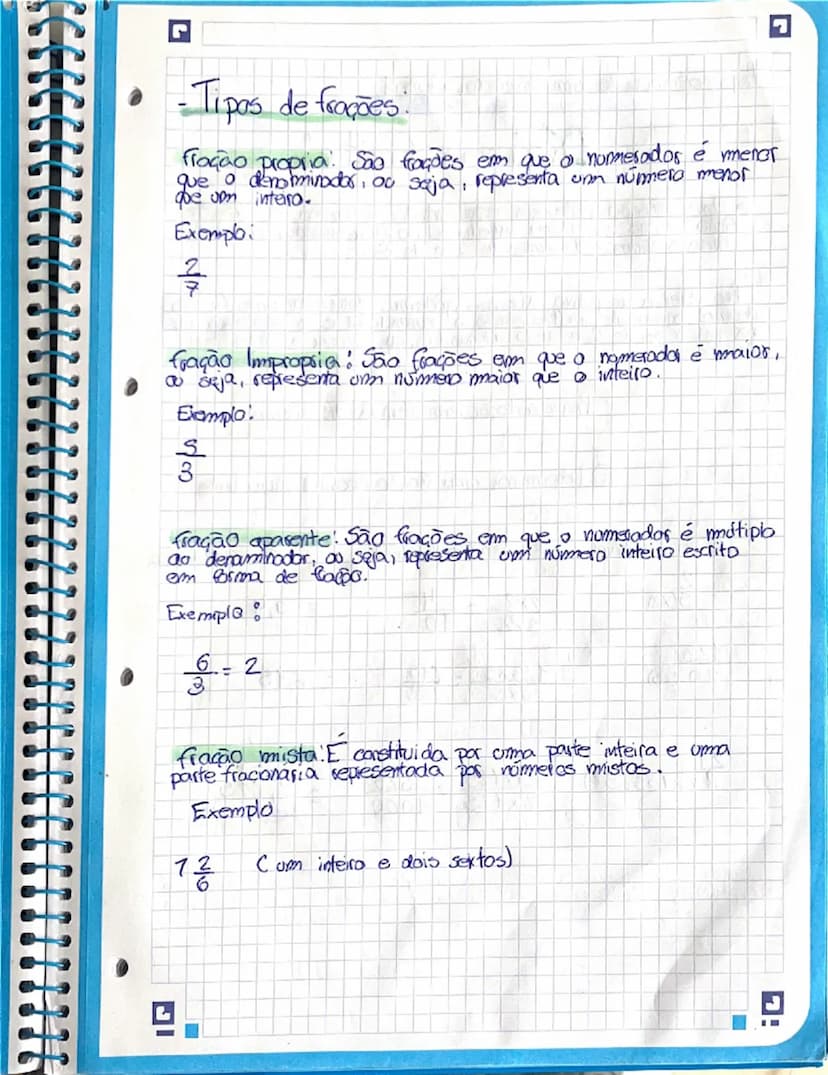 - Tipos de frações:
fração propria: São frações em que o numerador é menor
que o denominador, ou seja, representa um número menor
que um inteiro.
Exemplo:
2
7
fração Impropria: São frações em que o numerador é maior,
ou seja, representa um número maior que o inteiro.
Exemplo:
5
3
fração aparente: São frações em que o numerador é múltiplo
ao denominador, ou seja, representa um número inteiro escrito
em forma de fração.
Exemplo:
6
3 = 2
fração mista: É constituida por uma parte inteira e uma
parte fracionaria representada por números mistos.
Exemplo
1 2
6 (um inteiro e dois sextos)